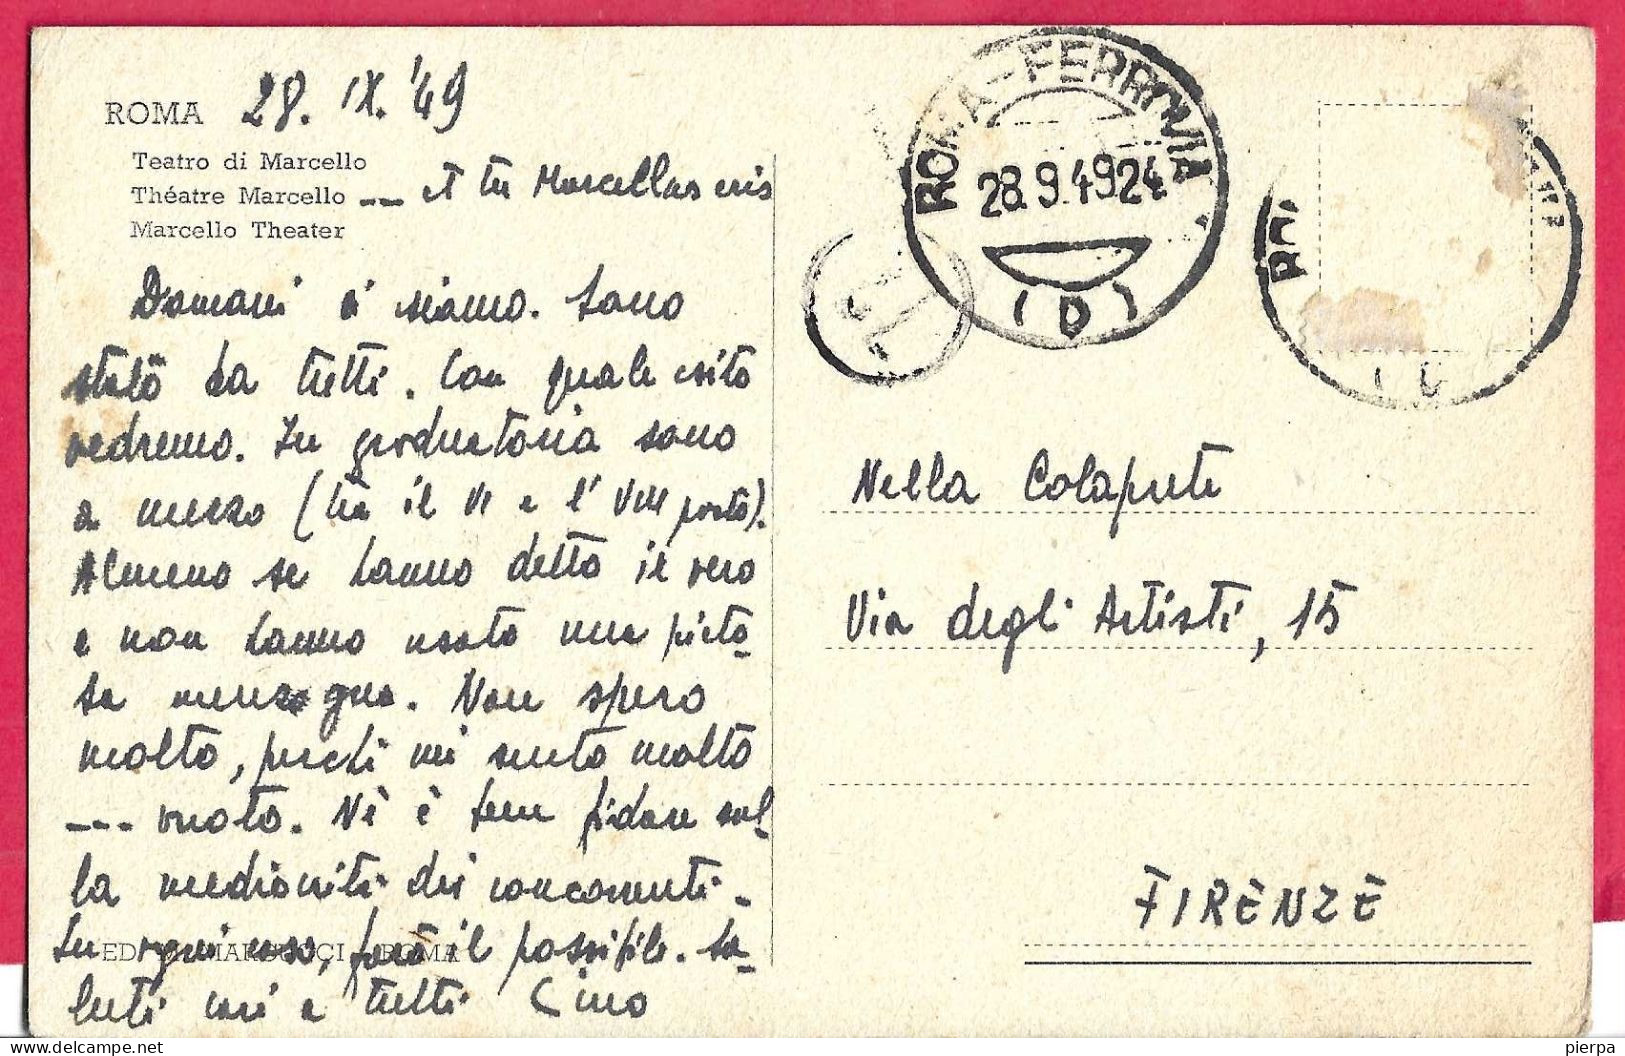 ROMA 28. IX. '49
Teatro di Marcello
Théatre Marcello --- et tu Marcellus eris
Marcello Theater
Domani ci siamo. Sono
stato da tutti. Con quale esito
vedremo. In graduatoria sono
a mezzo (tra il VI e l'VIII posto).
Almeno se hanno detto il vero
e non hanno usato una pieto-
sa menzogna. Non spero
molto, perché mi sento molto
--- vuoto. Né è ben fidare sul-
la mediocrità dei concorrenti.
In ogni caso, farò il possibile. Sa-
luti cari a tutti Cino
ED. MARDUCCI ROMA
ROMA-FERROVIA
28.9.49.24
(D)
Nella Colaprete
Via degli Artisti, 15
FIRENZE
delcampe.net
pierpa